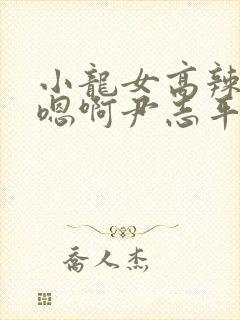 小龍女高辣
嗯啊尹志平
喬人杰